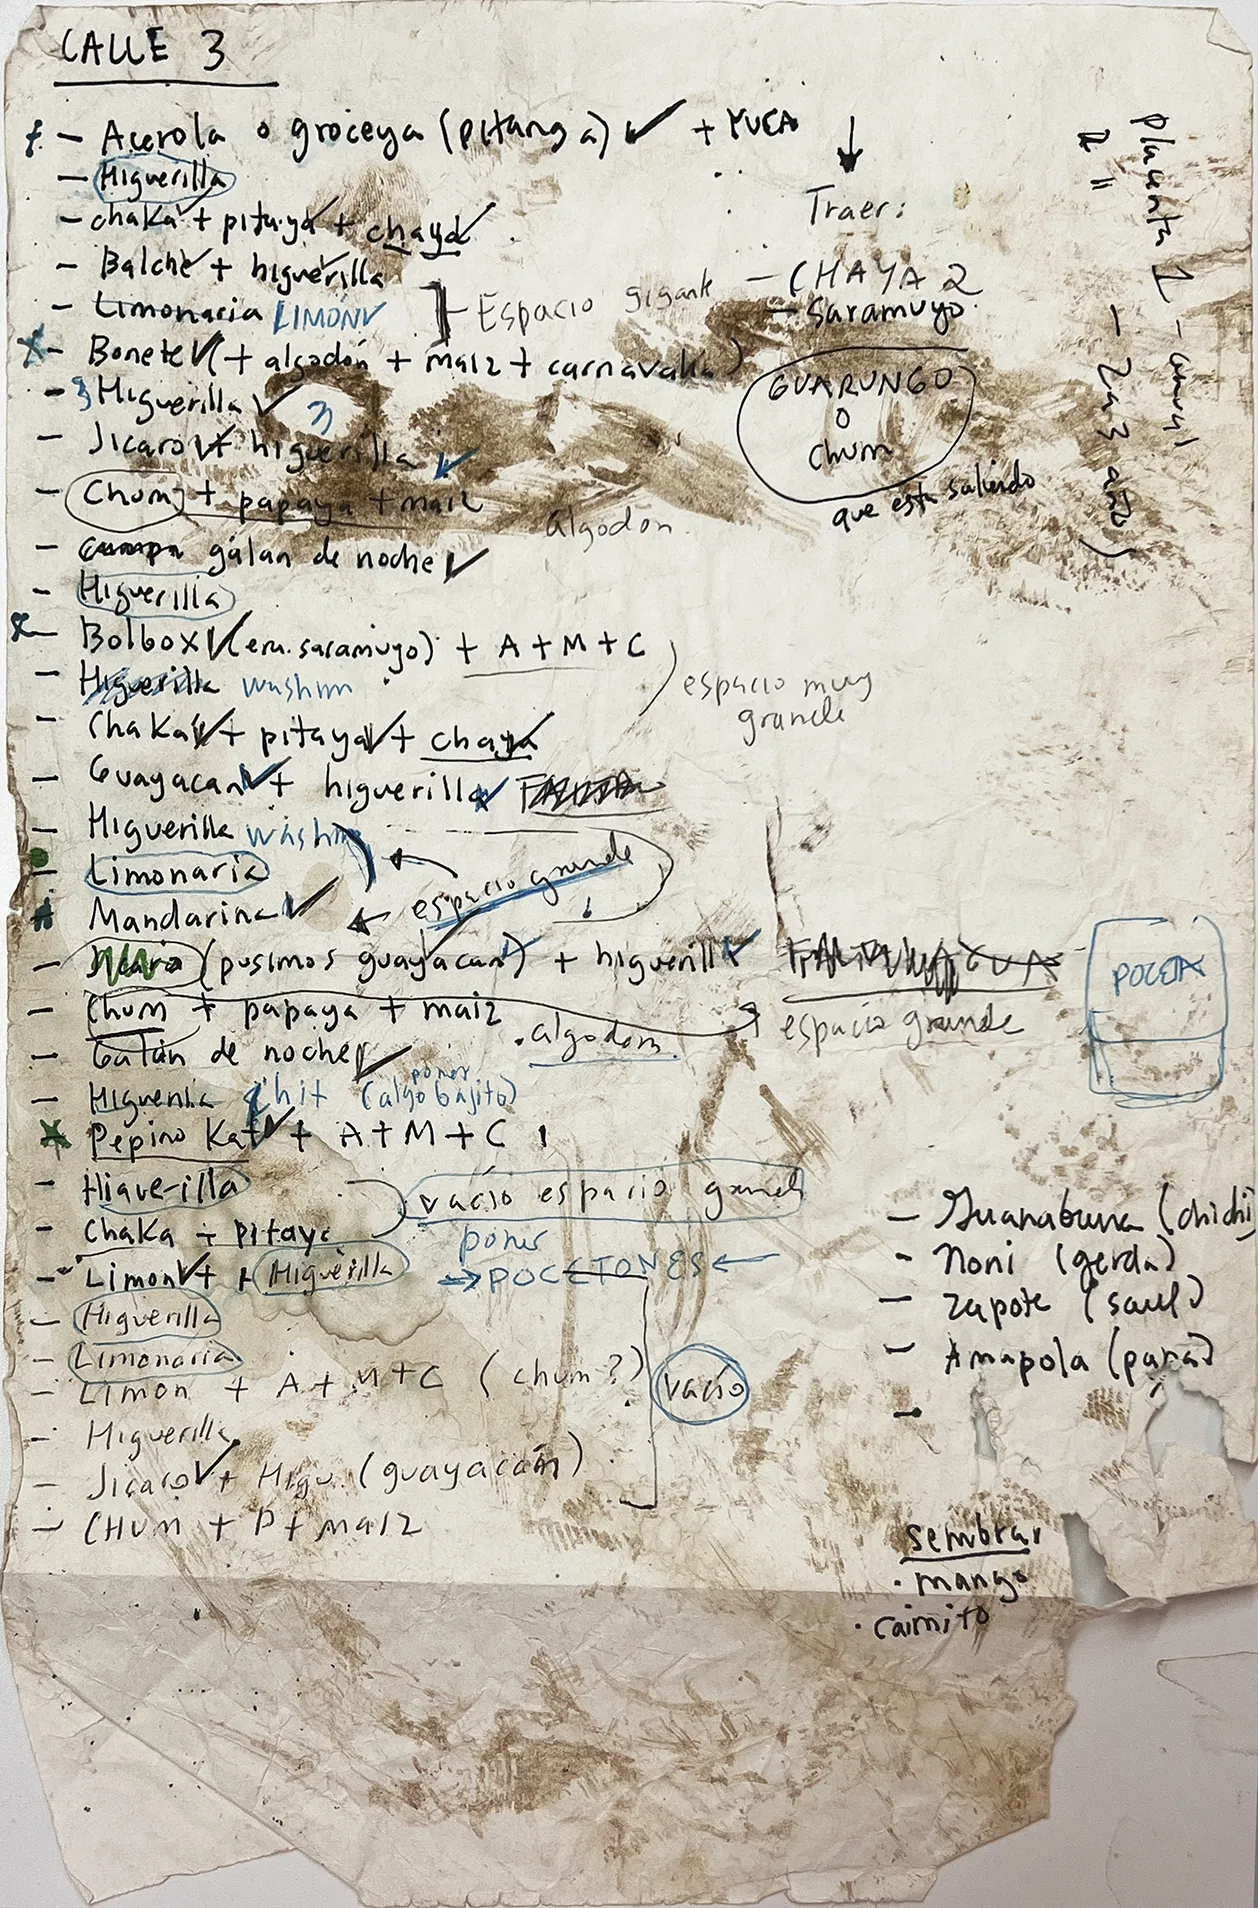 CALLE 3
- Acerola o groceya (pitanga) ✓ + YUCA
- Higuerilla
- chaka ✓ + pitaya ✓ + chaya ✓
- Balché ✓ + higuerilla ✓
- Limonaria LIMON ✓
Espacio gigante
- Bonete ✓ (+ algodón + maiz + carnavalia)
- 3 Higuerilla ✓ 3
- Jicaro ✓ + higuerilla ✓
- Chum + papaya + maiz
algodón
- galan de noche ✓
- Higuerilla
- Bolbox ✓ (era saramuyo) + A + M + C
- Higuerilla washim
espacio muy
grande
- Chaka ✓ + pitaya ✓ + chaya ✓
- Guayacan ✓ + higuerilla ✓
- Higuerilla washim
- Limonaria
espacio grande
- Mandarina ✓
- Jicaro (pusimos guayacan ✓) + higuerilla ✓
espacio grande
- Chum + papaya + maiz
· algodon
- Galan de noche ✓
- Higuerilla Chit (poner algo bajito)
- Pepino Kat ✓ + A + M + C
- Higuerilla
- Chaka + pitaya
vacío espacio grande
poner
- Limon ✓ + Higuerilla → POCETONES ←
- Higuerilla
- Limonaria
- Limon + A + M + C (chum?)
vacío
- Higuerilla
- Jicaro ✓ + Higu (guayacán)
- CHUM + P + maiz
Traer:
- CHAYA 2
- Saramuyo
GUARUNGO
O
chum
que esta saliendo
placenta 1 -
2 " - 2 a 3 año)
POCETA
- Guanabana (chichi)
- Noni (gerda)
- Zapote (saul)
- Amapola (para)
-
Sembrar
· mango
· caimito